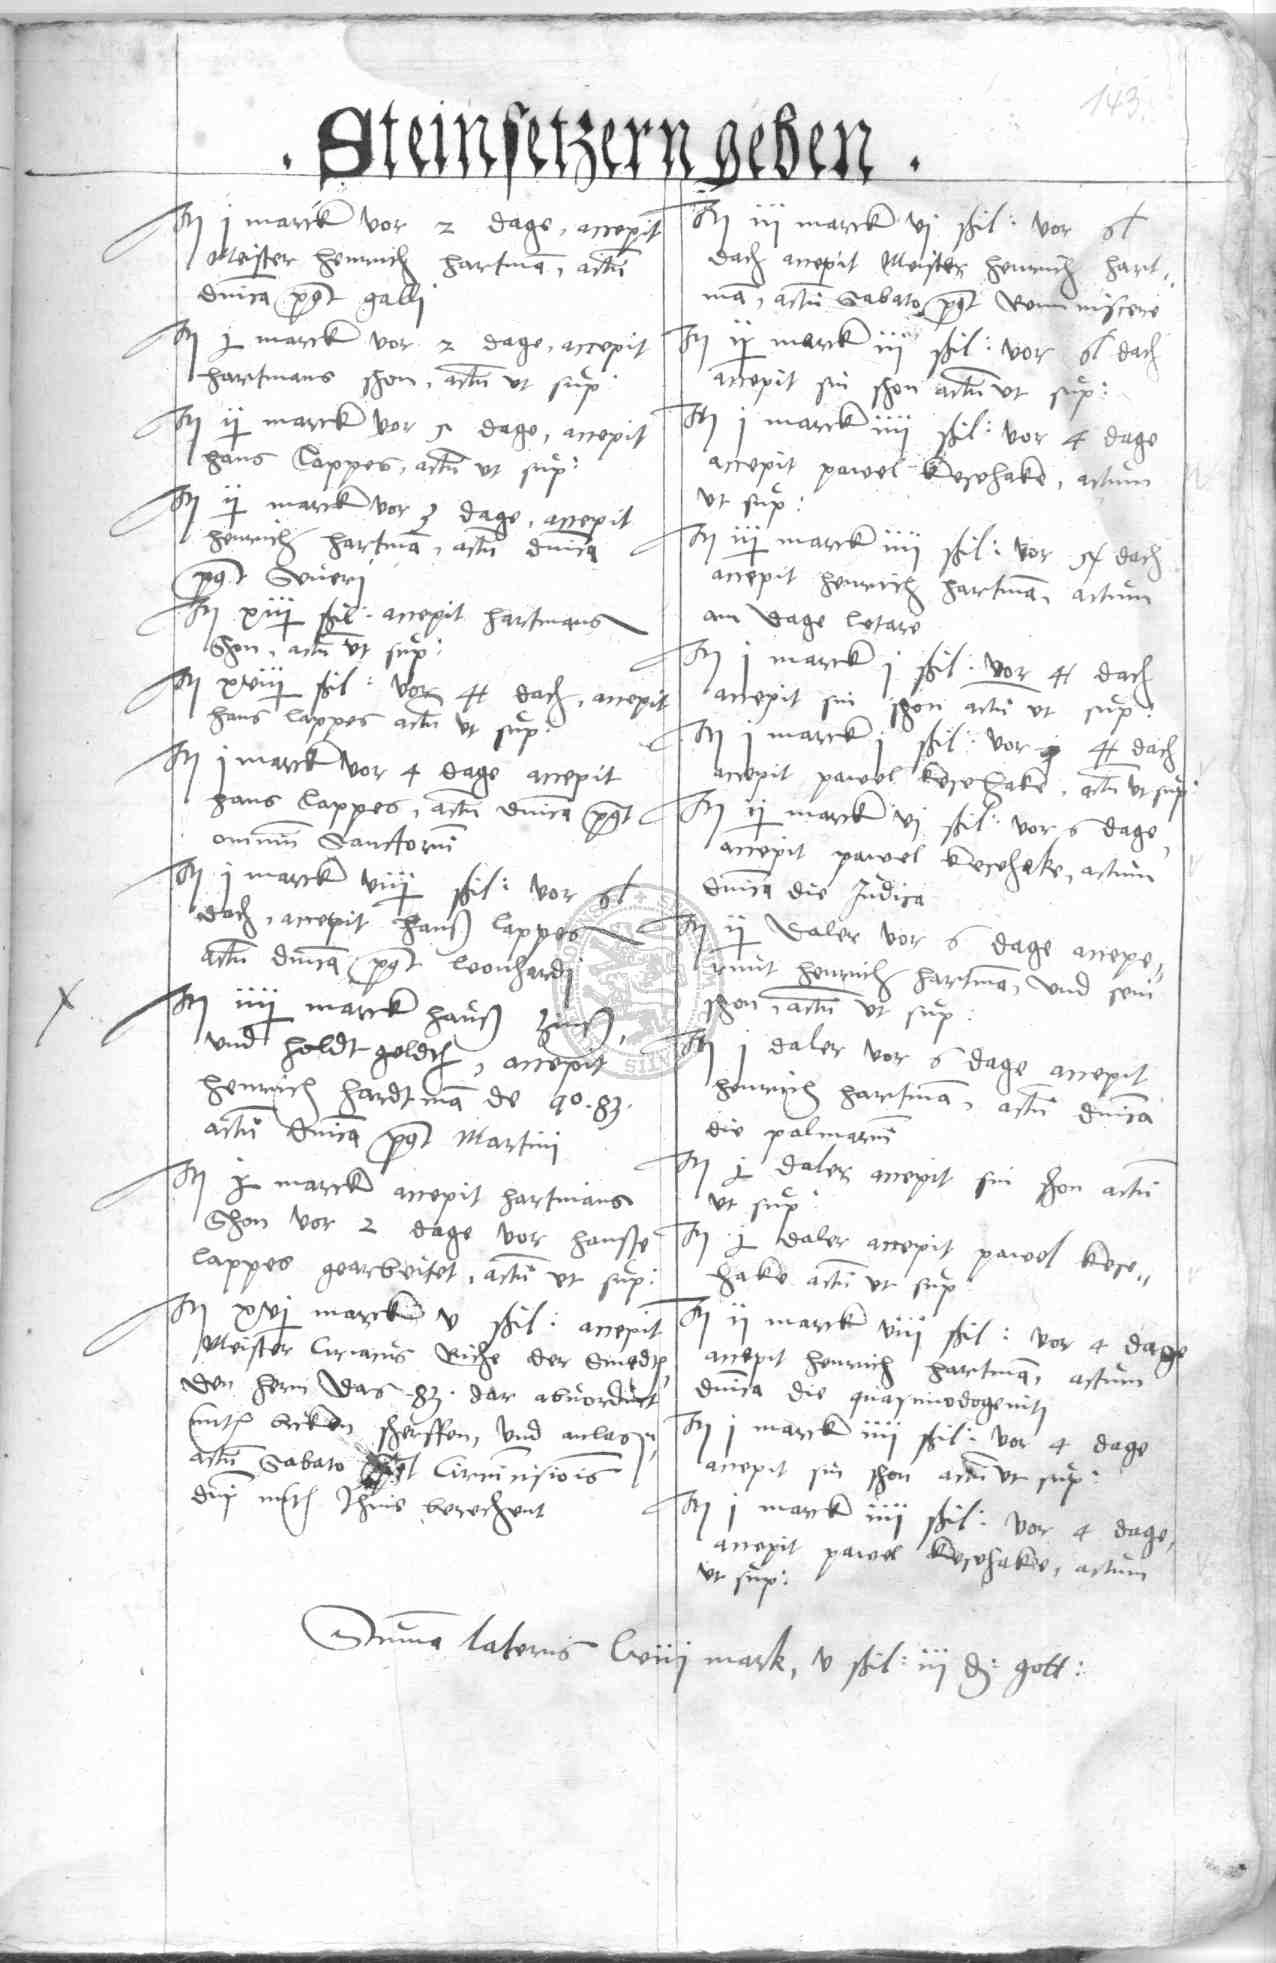 143.
. Steinsetzern geben .
It j marck vor 2 dage, accepit
Meister Henrich Hartmā, actū
dnīca post galli
It j marck vor 2 dage, accepit
Hartmans shon, actū ut sup:
It ij marck vor 5 dage, accepit
Hans Lappes, actū ut sup:
It ij marck vor 3 dage, accepit
Henrich Hartmā, actū dnīca
post Severi
It xiij ßil: accepit Hartmans
Shon, actū ut sup:
It xviij ßil: vor 4 dach, accepit
Hans Lappes actū ut sup:
It j marck vor 4 dage accepit
Hans Lappes, actū dnīca post
omniū Sanctorum
It j marck viij ßil: vor 6
dach, accepit Hanß Lappes
actū dnīca post Leonhardj
It iiij marck Hauß Zinß,
und holdt geldt, accepit
Henrich Hardtmā de 40. 83.
actū dnīca post Martini
It j marck accepit Hartmans
Shon vor 2 dage vor Hansse
Lappes gearbeitet, actū ut sup:
It xvj marck v ßil: accepit
Meister Ciriacus der
den hern das 83. dar
bicken scherffen, und
actū Sabato post Circūncisiōis
dnj berechent
It iij marck vj ßil: vor 6
dach accepit Meister Henrich Hart,,
mā, actū Sabato post Reminiscere
It ij marck iij ßil: vor 6 dach
accepit sin shon actū ut sup:
It j marck iiij ßil: vor 4 dage
accepit pawel Kesehake, actum
ut sup:
It iij marck iiij ßil: vor 5 dach
accepit Henrich Hartmā, actum
am dage letare
It j marck j ßil: vor 4 dach
accepit sin shon actū ut sup:
It j marck j ßil: vor 4 dach
accepit pawel Kesehake, actū ut sup:
It ij marck vj ßil: vor 6 dage,
accepit pawel Kesehake, actum
dnīca die Judica
It ij daler vor 6 dage accepe,,
runt Henrich Hartmā, und sein
shon, actū ut sup:
It j daler vor 6 dage accepit
Henrich Hartmā, actū dnīca
die palmarū
It j daler accepit sin shon actū
ut sup:
It j daler accepit pawel Kese,,
hake actū ut sup:
It ij marck viij ßil: vor 4 dage
accepit Henrich Hartmā, actum
dnīca die quasimodogeniti
It j marck iiij ßil: vor 4 dage
accepit sin shon actū ut sup:
It j marck iiij ßil: vor 4 dage,
accepit pawel Kesehake, actum
ut sup:
Suma lateris lviij mark, v ßil: iij d: gott: